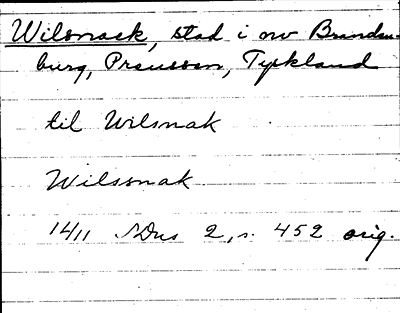 Wilsnack, stad i nv Branden-
burg, Preussen, Tyskland
til Wilsnak
Wilssnak
1411 SDns 2, s. 452 orig.